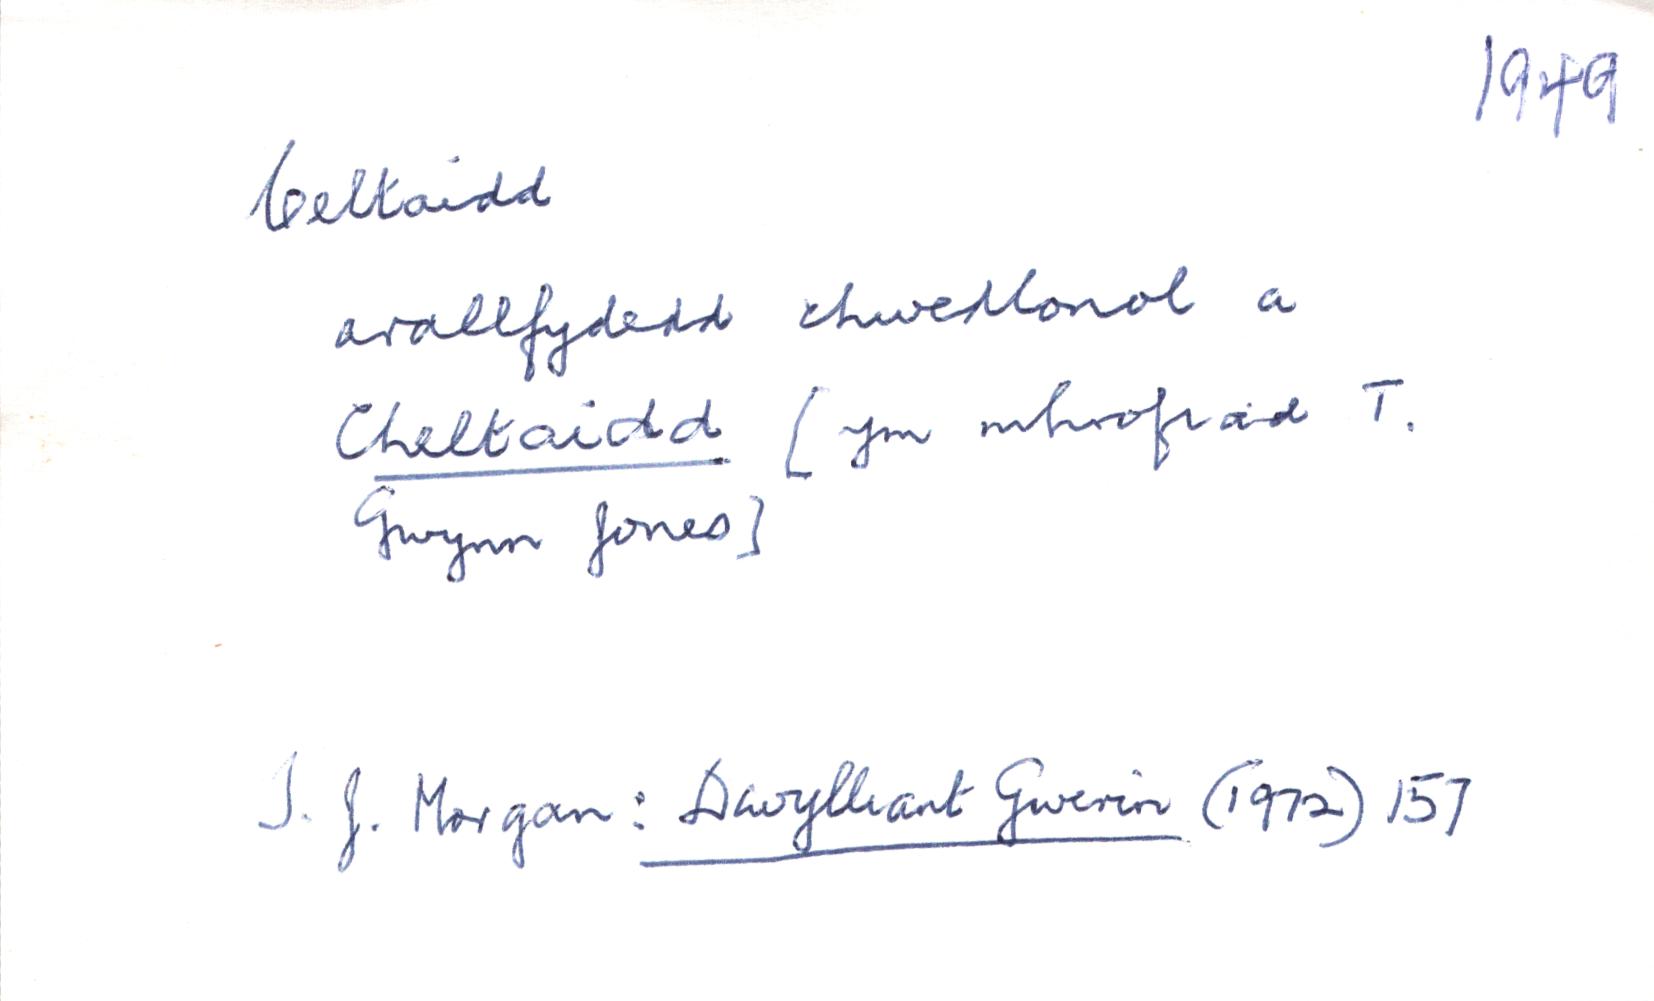 1949
Celtaidd
arallfydedd chwedlonol a
Cheltaidd [ym mhrofiad T.
Gwynn Jones]
T. J. Morgan: Diwylliant Gwerin (1972) 157